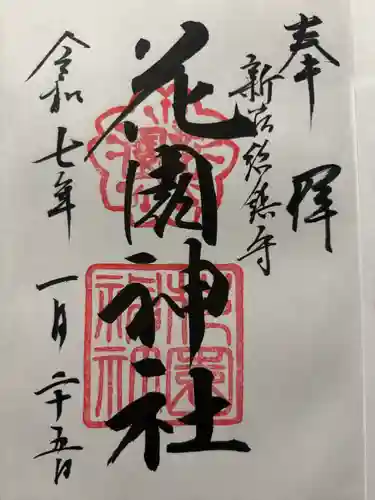 奉拝
新宿総鎮守
花園神社
令和七年一月二十五日
花園神社